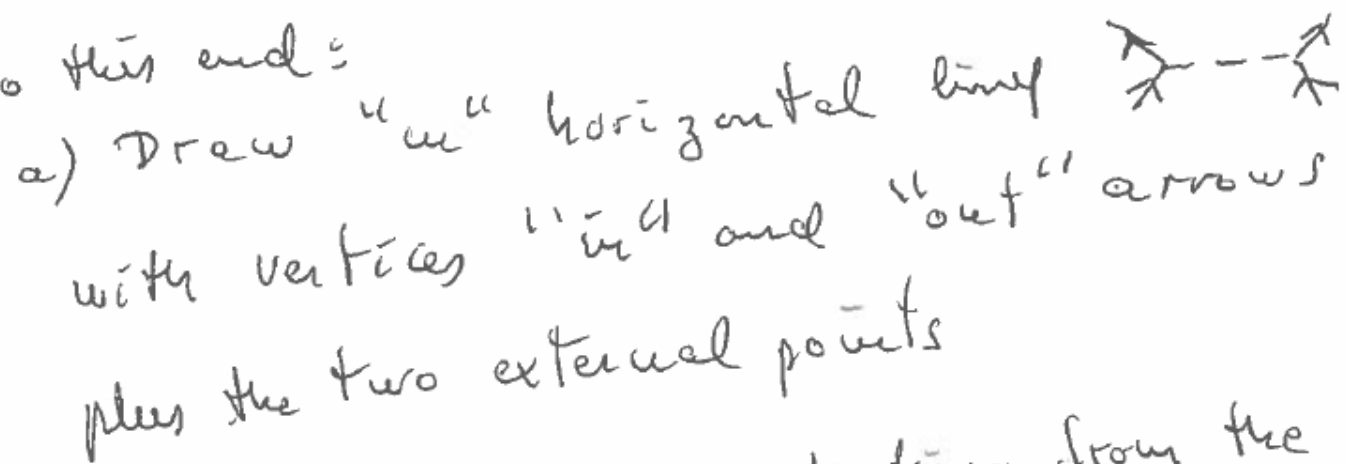 o this end:
a) Draw "m" horizontal lines
with vertices "in" and "out" arrows
plus the two external points
from the